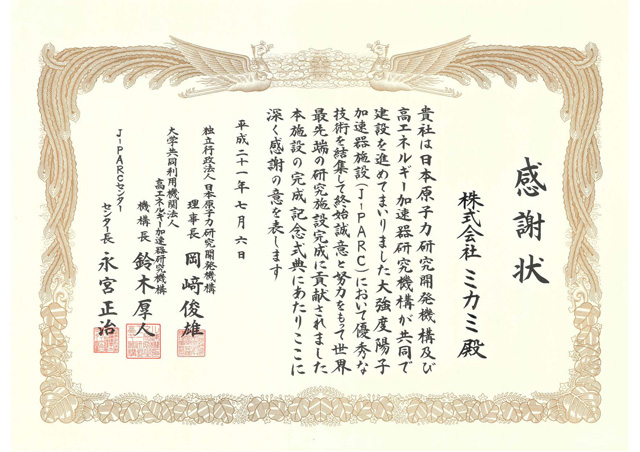 感謝状
株式会社 ミカミ 殿
貴社は日本原子力研究開発機構及び
高エネルギー加速器研究機構が共同で
建設を進めてまいりました大強度陽子
加速器施設(J-PARC)において優秀な
技術を結集して終始誠意と努力をもって世界
最先端の研究施設完成に貢献されました
本施設の完成記念式典にあたりここに
深く感謝の意を表します
平成二十一年七月六日
独立行政法人 日本原子力研究開発機構
理事長 岡﨑俊雄
大学共同利用機関法人
高エネルギー加速器研究機構
機構長 鈴木厚人
J-PARCセンター
センター長 永宮正治